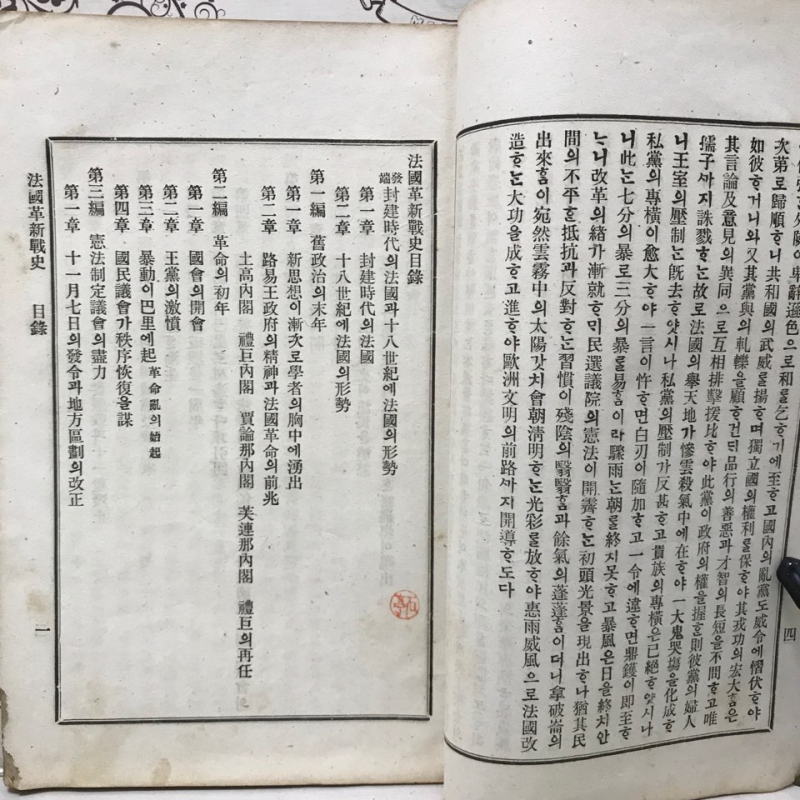 卑辭遜色으로和를乞ᄒᆞ기에至ᄒᆞ고國內의亂黨도威令에慴伏ᄒᆞ야
次第로歸順ᄒᆞ니共和國의武威를揚ᄒᆞ며獨立國의權利를保ᄒᆞ야其戎功의宏大ᄒᆞᆷ은
如彼ᄒᆞ거니와又其黨與의軋轢을顧ᄒᆞ건ᄃᆡ品行의善惡과才智의長短을不問ᄒᆞ고唯
其言論及意見의異同으로互相排擊援比ᄒᆞ야此黨이政府의權을握ᄒᆞᆫ則彼黨의婦人
孺子ᄭᆞ지誅戮ᄒᆞᄂᆞᆫ故로法國의擧天地가慘雲殺氣中에在ᄒᆞ야一大鬼哭場을化成ᄒᆞ
니王室의壓制ᄂᆞᆫ旣去ᄒᆞ얏시나私黨의壓制가反甚ᄒᆞ고貴族의專橫은已絕ᄒᆞ얏시나
私黨의專橫이愈大ᄒᆞ야一言이忤ᄒᆞ면白刃이隨加ᄒᆞ고一令에違ᄒᆞ면鼎鑊이卽至ᄒᆞ
니此ᄂᆞᆫ七分의暴로三分의暴를易ᄒᆞᆷ이라驟雨ᄂᆞᆫ朝를終치못ᄒᆞ고暴風은日을終치안
ᄂᆞ니改革의緒가漸就ᄒᆞᄆᆡ民選議院의憲法이開霽ᄒᆞᄂᆞᆫ初頭光景을現出ᄒᆞ나猶其民
間의不平ᄒᆞᆫ抵抗과反對ᄒᆞᄂᆞᆫ習慣이殘陰의翳翳ᄒᆞᆷ과餘氣의蓬蓬ᄒᆞᆷ이더니拿破崙의
出來ᄒᆞᆷ이宛然雲霧中의太陽갓치會朝淸明ᄒᆞᄂᆞᆫ光彩를放ᄒᆞ야惠雨威風으로法國改
造ᄒᆞᄂᆞᆫ大功을成ᄒᆞ고進ᄒᆞ야歐洲文明의前路ᄭᆞ지開導ᄒᆞ도다
四
法國革新戰史目錄
發端 封建時代의法國과十八世紀에法國의形勢
第一章 封建時代의法國
第二章 十八世紀에法國의形勢
第一編 舊政治의末年
第一章 新思想이漸次로學者의胸中에湧出
第二章 路易王政府의精神과法國革命의前兆
土高內閣 禮巨內閣 賈論那內閣 芙連那內閣 禮巨의再任
第二編 革命의初年
第一章 國會의開會
第二章 王黨의激憤
第三章 暴動이巴里에起 革命亂의始起
第四章 國民議會가秩序恢復을謀
第三編 憲法制定議會의盡力
第一章 十一月七日의發令과地方區劃의改正
法國革新戰史 目錄
一